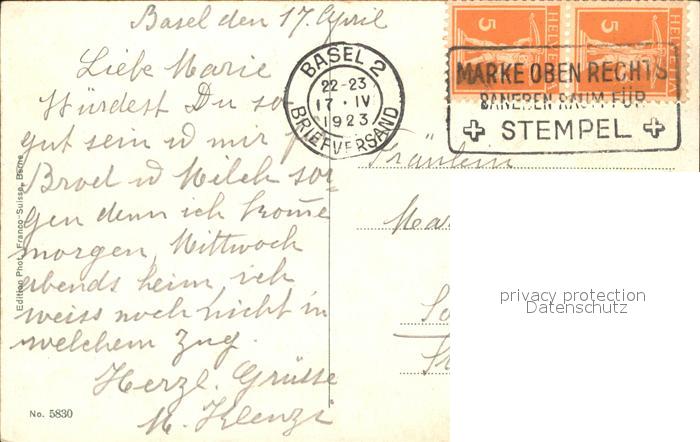 Basel den 17. April
Liebe Marie
Würdest Du so
gut sein u mir f
Brod u Milch sor-
gen denn ich komme
morgen, Mittwoch
abends heim, ich
weiss noch nicht in
welchem Zug.
Herzl. Grüsse
M.
BASEL 2
22-23
17·IV
1923
BRIEFVERSAND
5 5
HELVETIA HELVETIA
MARKE OBEN RECHTS
DANEBEN RAUM FÜR
+ STEMPEL +
Fräulein
Mar
privacy protection
Datenschutz
Edition Phot. Franco-Suisse, Berne
No. 5830